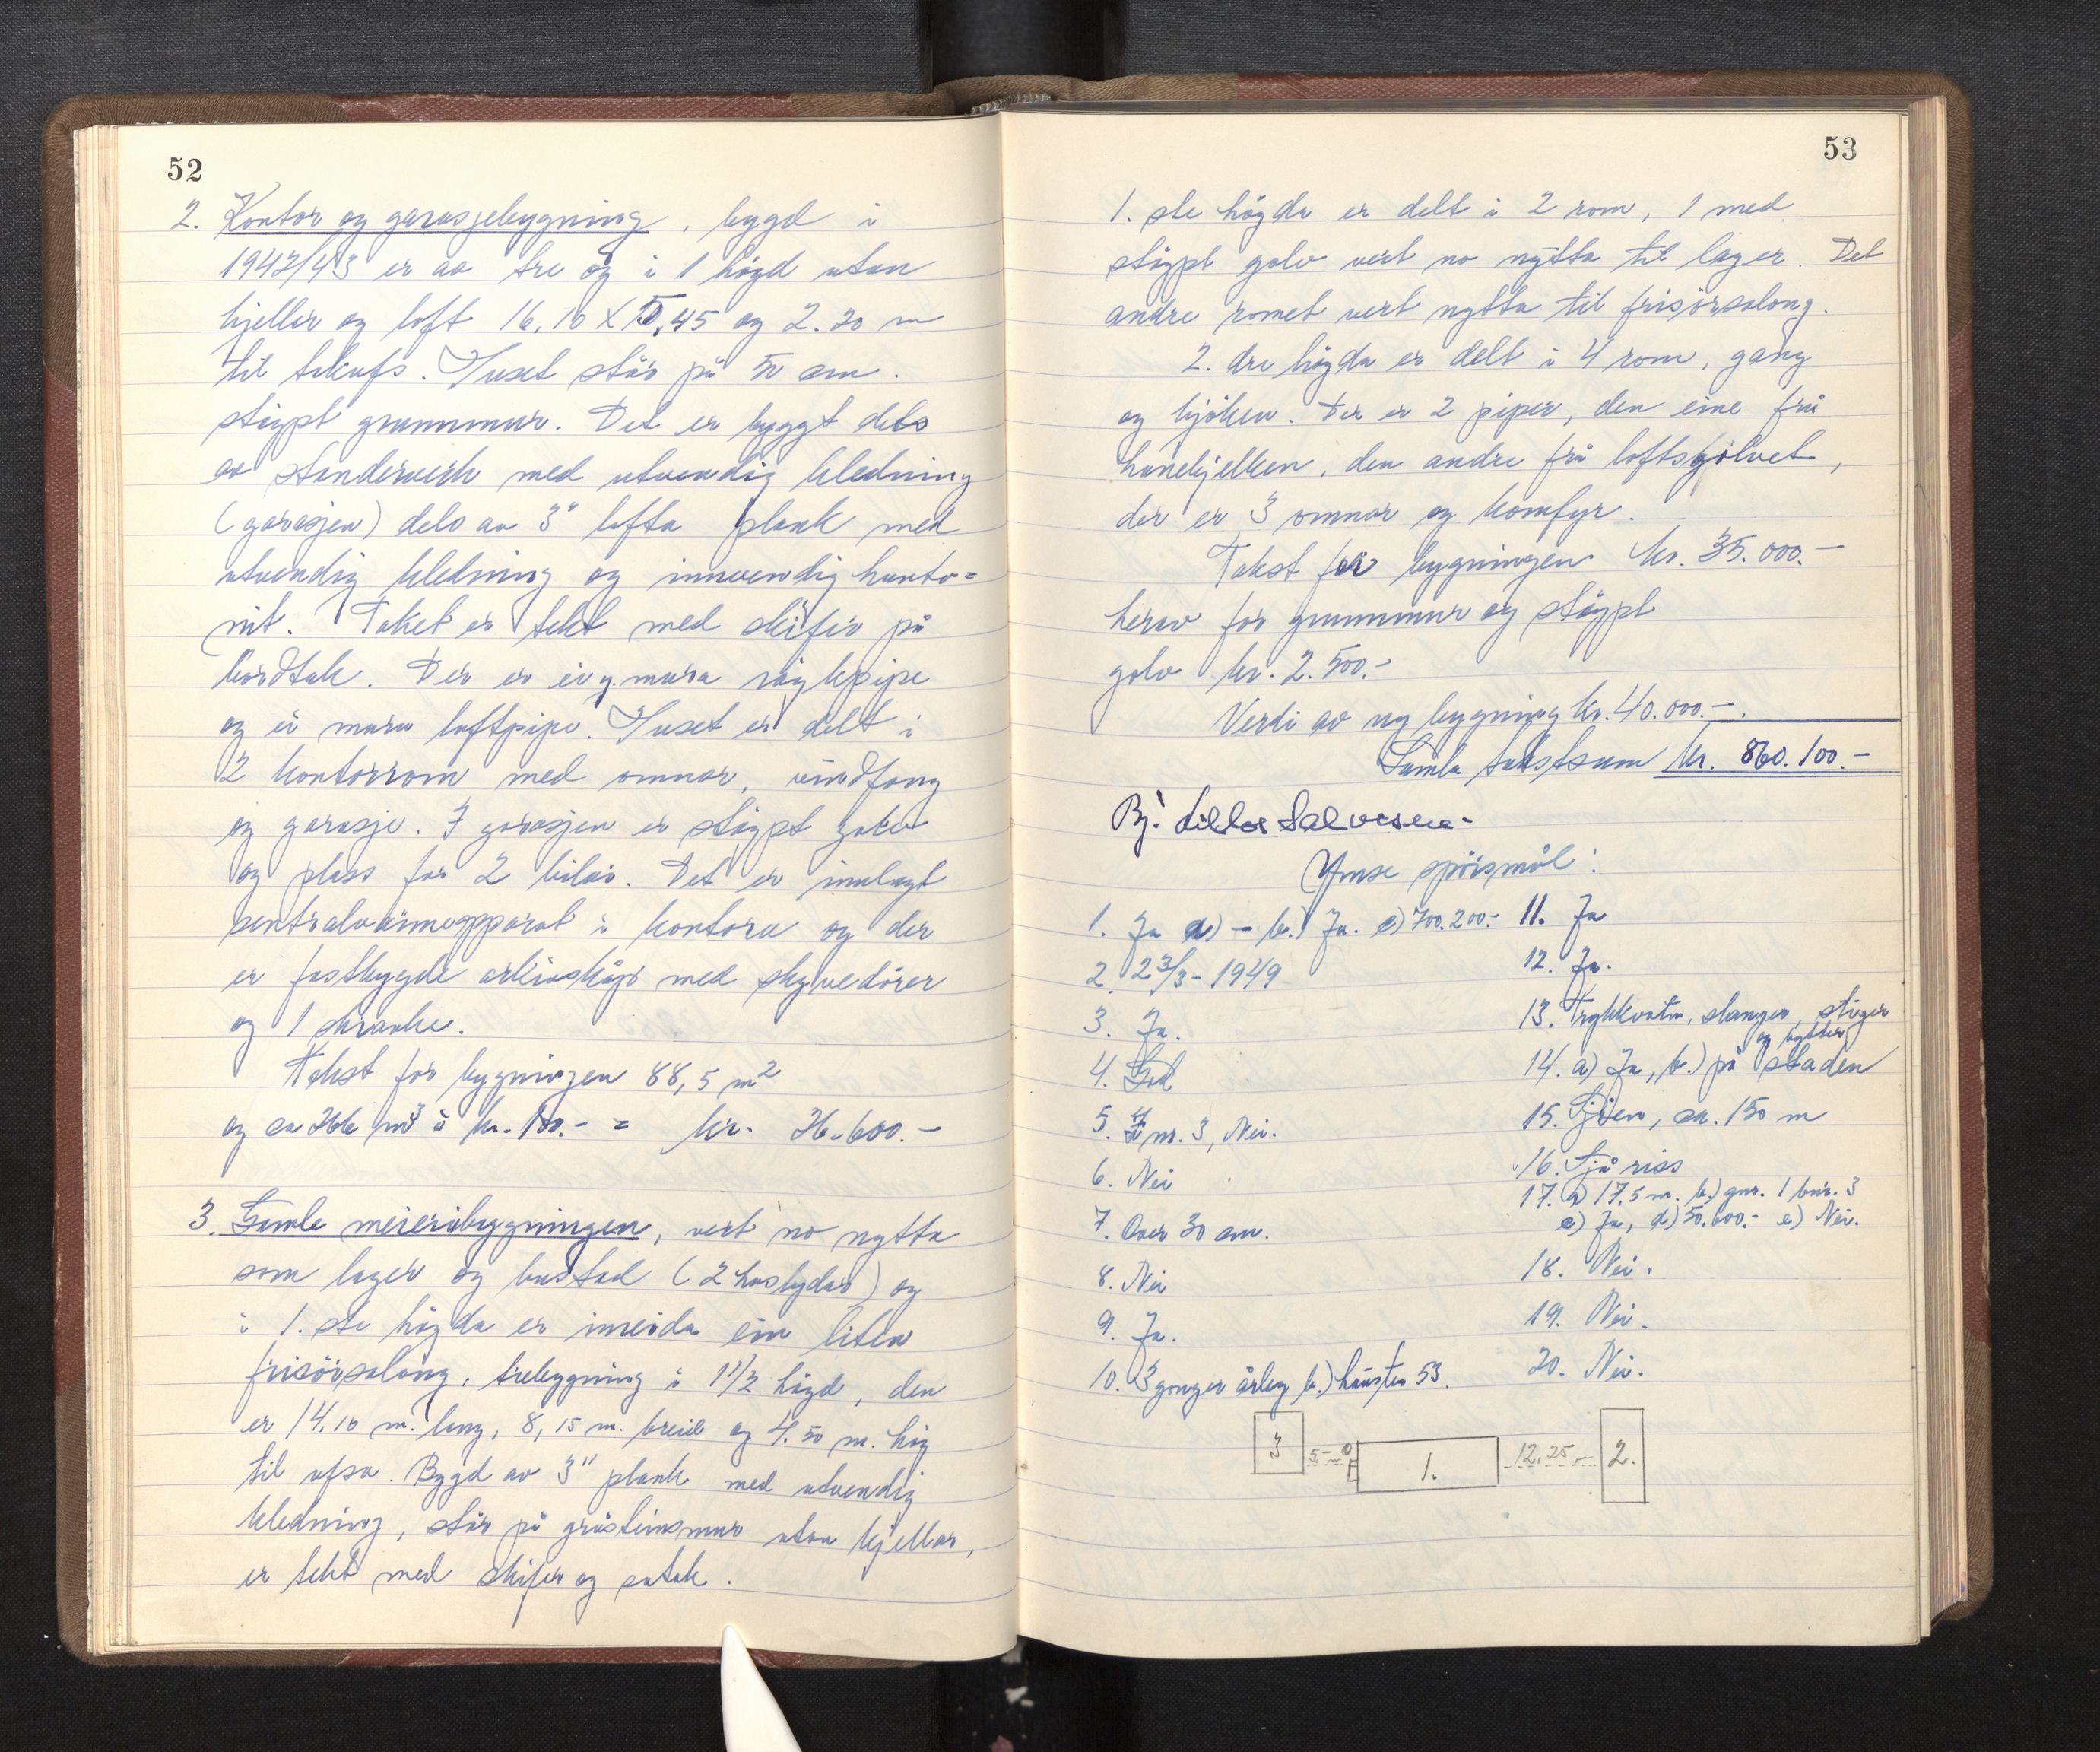 52
2. Kontor og garasjebygning, bygd i
1942/43 er av tre og i 1 høgd utan
kjeller og loft 16,10 X 5,45 og 2.20 m
til takufs. Huset står på 50 cm.
støypt grunnmur. Det er byggt dels
av standerverk med utvendig kledning
(garasjen) dels av 3" lafta plank med
utvendig kledning og innvendig hunto=
nit. Taket er tekt med skifer på
bordtak. Der er ei g. mura røykpipe
og ei mura loftpipe. Huset er delt i
2 kontorrom med omnar, vindfang
og garasje. I garasjen er støypt golv
og plass for 2 bilar. Det er innlagt
sentralvarmeapparat i kontora og der
er fastbygde arkivskåp med skyvedörer
og 1 skranke.
Takst for bygningen 88,5 m2
og ca 266 m3 à kr. 100.- = kr. 26.600.-
3. Gamle meieribygningen, vert no nytta
som lager og bustad (2 huslydar) og
i 1. ste høgda er innreida ein liten
frisörsalong, trebygning i 1 1/2 høgd, den
er 14.10 m. lang, 8,15 m. breid og 4.50 m. høg
til ufsa. Bygd av 3" plank med utvendig
kledning, står på gråsteinsmur utan kjellar,
er tekt med skifer og sutak.
53
1. ste høgda er delt i 2 rom, 1 med
støypt golv vert no nytta til lager. Det
andre romet vert nytta til frisørsalong.
2. dre høgda er delt i 4 rom, gang
og kjöken. Der er 2 piper, den eine frå
hanebjelken, den andre frå loftsgolvet,
der er 3 omnar og komfyr.
Takst for bygningen kr. 35.000.-
herav for grunnmur og støypt
golv kr. 2.500.-
Verdi av ny bygning kr. 40.000.-.
Samla takstsum kr. 860.100.-
Bj. Salvesen
Ymse spörsmål:
1. Ja a) - b.) Ja. c) 700.200.-
2. 23/3 - 1949
3. Ja.
4. God
5. nr. 3, Nei.
6. Nei
7. Over 30 cm.
8. Nei
9. Ja.
10. 3 gonger årleg b.) hausten 53.
11. Ja
12. Ja.
13. Trykkvatn, slanger, stiger
og bøtter
14. a) Ja, b.) på staden
15. Sjöen, ca. 150 m
16. Sjå riss
17. a) 17,5 m. b.) gnr. 1 bnr. 3
c) Ja, d) 50.600.- e) Nei.
18. Nei.
19. Nei.
20. Nei.
3 5- 1. 12,25 2.